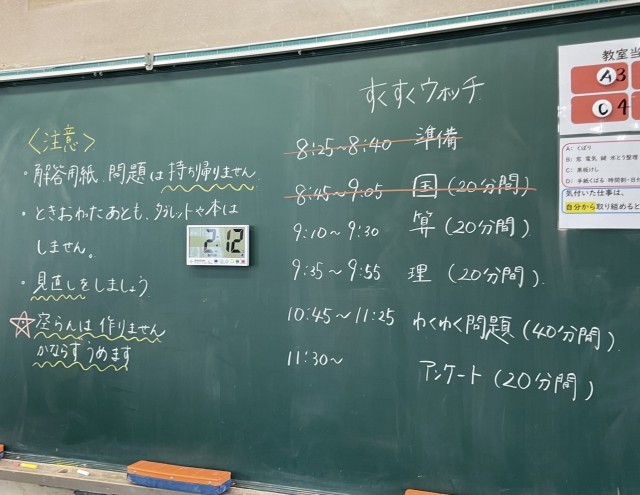 すくすくウォッチ
8:25〜8:40 準備
8:45〜9:05 国(20分間)
9:10〜9:30 算(20分間)
9:35〜9:55 理(20分間)
10:45〜11:25 わくわく問題(40分間)
11:30〜 アンケート(20分間)
<注意>
・解答用紙、問題は持ち帰りません。
・ときおわたあとも、タブレットや本は
しません。
・見直しをしましょう
☆空らんは作りません
かならずうめます
2:12
教室当
A3
C4
A: くばり
B: 窓 電気 鍵 水とう整理
C: 黒板けし
気付いた仕事は、
自分から取り組めると